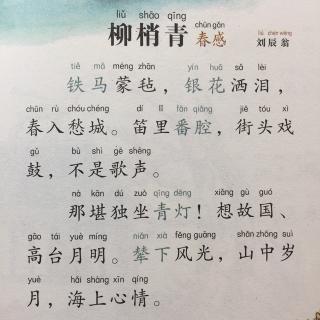 liǔ shāo qīng
柳梢青
chūn gǎn
春感
liú chén wēng
刘辰翁
tiě mǎ méng zhān yín huā sǎ lèi
铁马蒙毡，银花洒泪，
chūn rù chóu chéng dí lǐ fān qiāng jiē tóu xì
春入愁城。笛里番腔，街头戏
gǔ bù shì gē shēng
鼓，不是歌声。
nà kān dú zuò qīng dēng xiǎng gù guó
那堪独坐青灯！想故国、
gāo tái yuè míng niǎn xià fēng guāng shān zhōng suì
高台月明。辇下风光，山中岁
yuè hǎi shàng xīn qíng
月，海上心情。